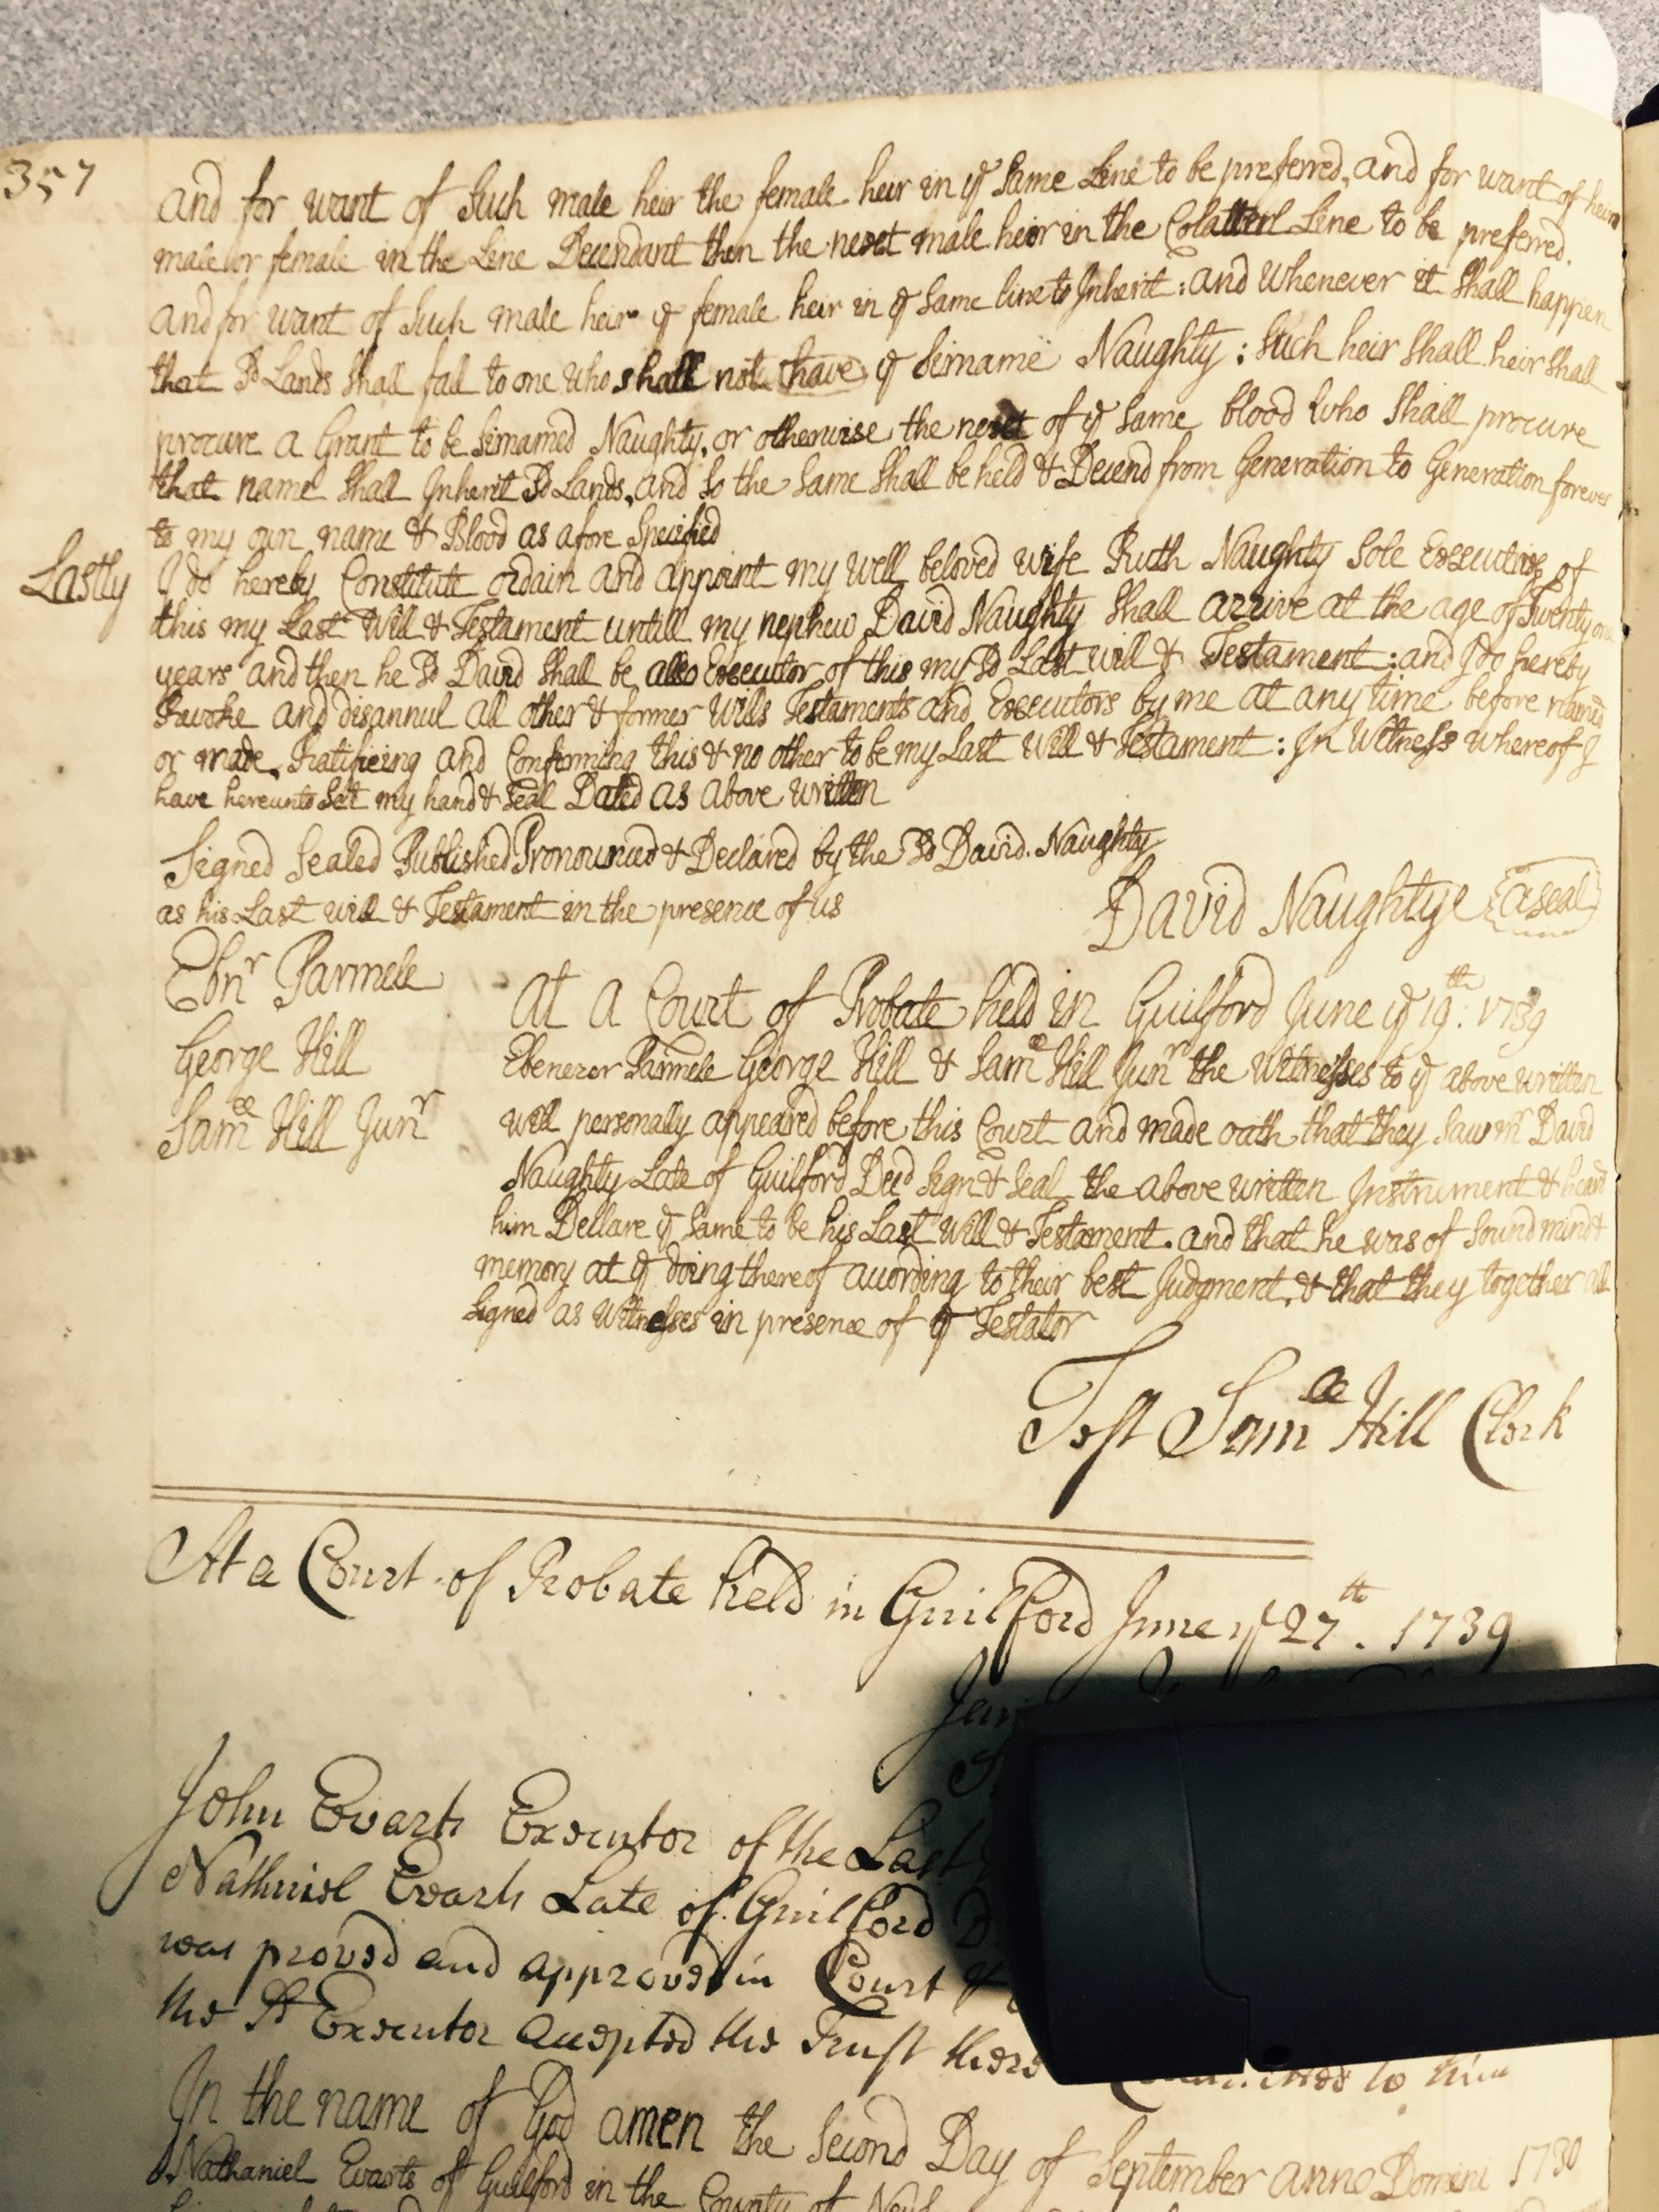 357
and for want of Such male heir the female heir in ye Same Line to be preferred, and for want of heirs
male or female in the Line Decendant then the next male heir in the Colatterl Line to be preferred.
and for want of Such male heir ye female heir in ye Same line to Inherit: and Whenever it Shall happen
that Sd Lands Shall fall to one who shall not have ye Sirname Naughty: Such heir Shall heir Shall
procure a Grant to be Sirnamed Naughty, or otherwise the next of ye Same blood who Shall procure
that name Shall Inherit Sd Lands, and So the Same Shall be held & Decend from Generation to Generation forever
to my own name & Blood as afore Specified
Lastly I do hereby Constitute ordain and appoint my well beloved wife Ruth Naughty Sole Executrix of
this my Last Will & Testament untill my nephew David Naughty Shall arrive at the age of Twenty one
years and then he Sd David Shall be allso Executor of this my Sd Last will & Testament: and I do hereby
Revoke and disannul all other & former Wills Testaments and Executors by me at any time before named
or made, Ratifieing and Confirming this & no other to be my Last Will & Testament: In Witness whereof I
have hereunto Set my hand & Seal Dated as above written
Signed Sealed Published Pronounced & Declared by the Sd David Naughty
as his Last will & Testament in the presence of us
David Naughtye a Seal
Ebnr Parmele
George Hill
Samll Hill Junr
At a Court of Probate held in Guilford June ye 19th: 1739
Ebenezer Parmele George Hill & Samll Hill Junr the Witnesses to ye above written
will personally appeared before this Court and made oath that they Saw mr David
Naughty Late of Guilford Decd Sign & Seal the above written Instrument & heard
him Declare ye Same to be his Last Will & Testament. and that he was of Sound mind &
memory at ye doing thereof according to their best Judgment, & that they together all
Signed as Witnesses in presence of ye Testator
Test Samll Hill Clerk
At a Court of Probate held in Guilford June ye 27th. 1739
John Evarts Executor of the Last
Nathaniel Evarts Late of Guilford
was proved and approved in Court &
the Sd Executor accepted the Trust
to him
In the name of God amen the Second Day of September anno Domini 1730
Nathaniel Evarts of Guilford in the County of